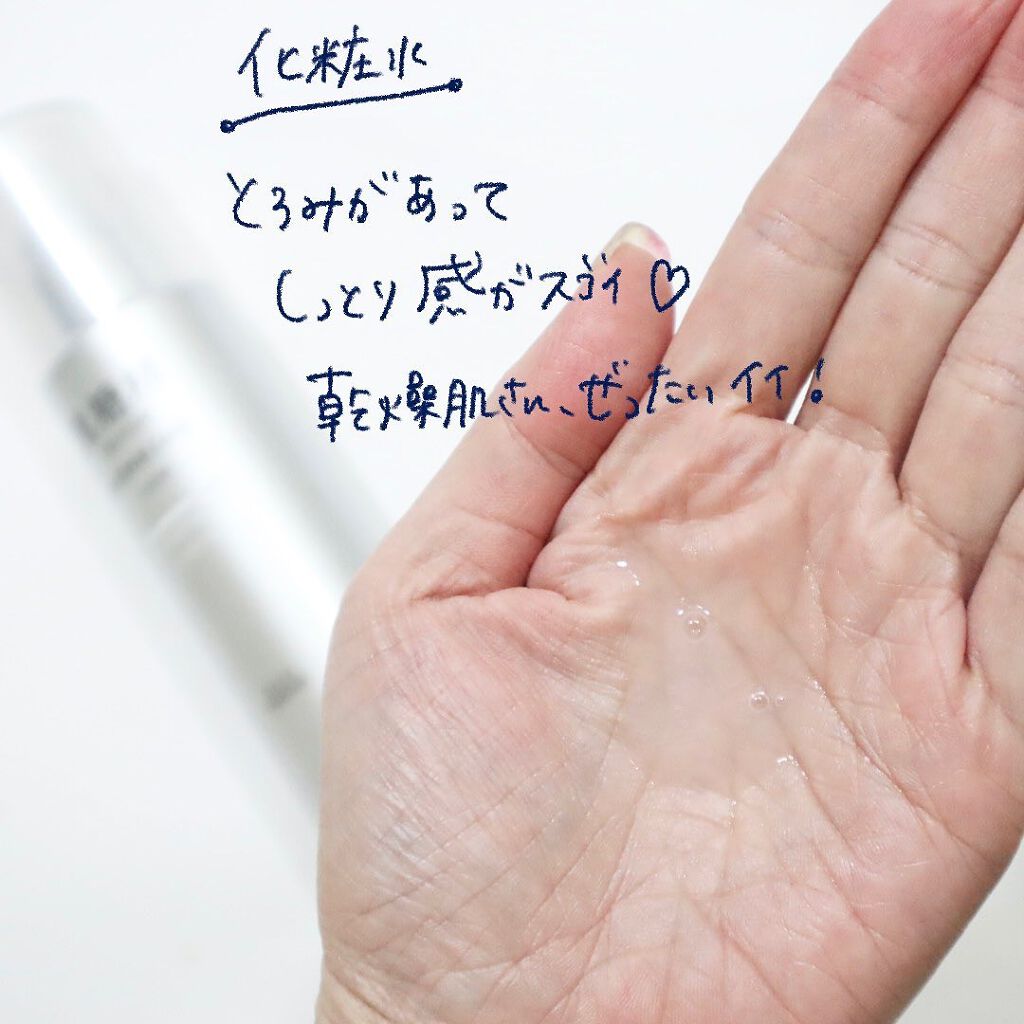 化粧水
とろみがあって
しっとり感がスゴイ♡
乾燥肌さん、ぜったいイイ!